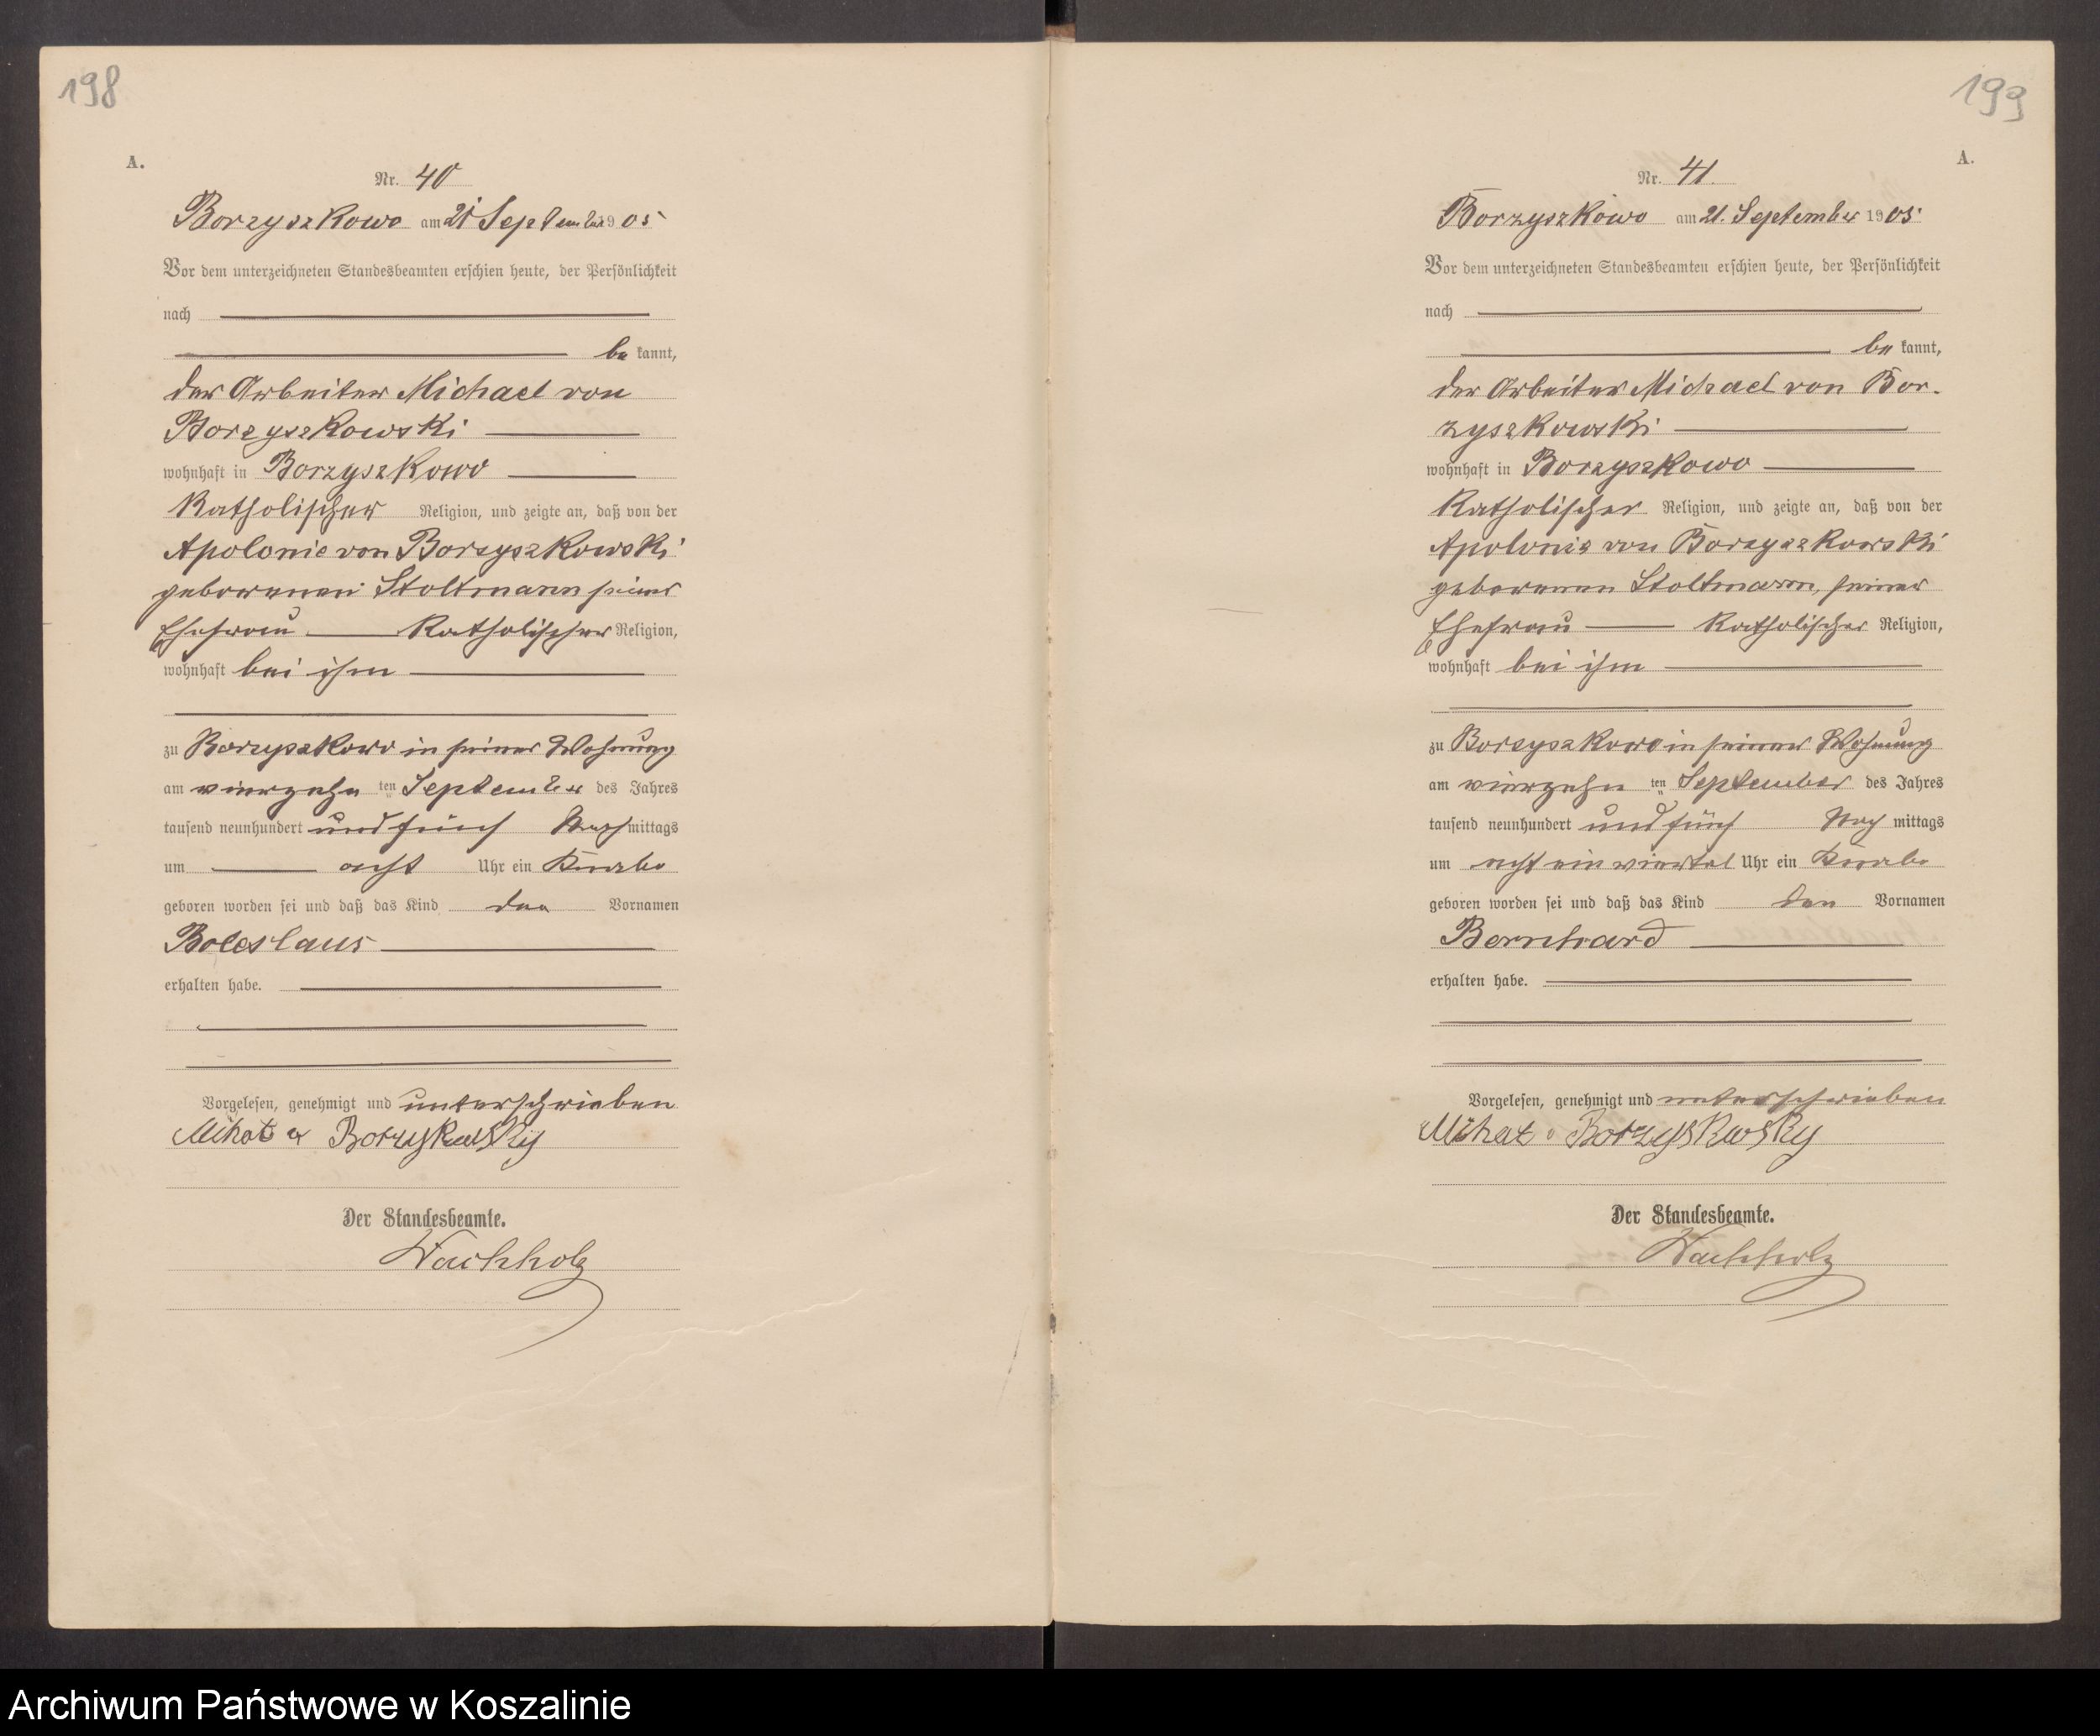 198
A.
Nr. 40
Borzyszkowo am 21 September 1905
Vor dem unterzeichneten Standesbeamten erschien heute, der Persönlichkeit
nach
be kannt,
der Arbeiter Michael von
Borzyszkowski
wohnhaft in Borzyszkowo
Katholischer Religion, und zeigte an, daß von der
Apolonie von Borzyszkowski
geborenen Stoltmann seiner
Ehefrau Katholischer Religion,
wohnhaft bei ihm
zu Borzyszkowo in seiner Wohnung
am vierzehn ten September des Jahres
tausend neunhundert und fünf Nach mittags
um acht Uhr ein Knabe
geboren worden sei und daß das Kind den Vornamen
Boleslaus
erhalten habe.
Vorgelesen, genehmigt und unterschrieben
Der Standesbeamte.
Wachholz
199
A.
Nr. 41.
Borzyszkowo am 21. September 1905
Vor dem unterzeichneten Standesbeamten erschien heute, der Persönlichkeit
nach
be kannt,
der Arbeiter Michael von Bor-
zyszkowski
wohnhaft in Borzyszkowo
Katholischer Religion, und zeigte an, daß von der
Apolonie von Borzyszkowski
geborenen Stoltmann, seiner
Ehefrau Katholischer Religion,
wohnhaft bei ihm
zu Borzyszkowo in seiner Wohnung
am vierzehn ten September des Jahres
tausend neunhundert und fünf Nach mittags
um acht ein viertel Uhr ein Knabe
geboren worden sei und daß das Kind den Vornamen
Bernhard
erhalten habe.
Vorgelesen, genehmigt und unterschrieben
Der Standesbeamte.
Wachholz
Archiwum Państwowe w Koszalinie